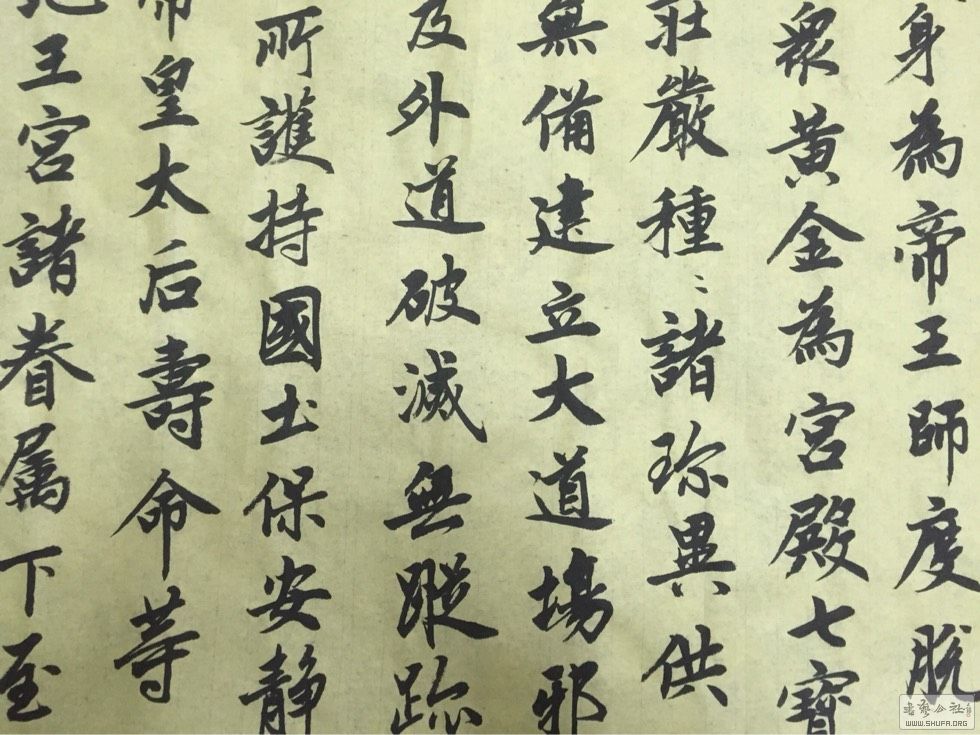 身為帝王師度脫
衆黃金為宮殿七寶
壯嚴種〻諸珎異供
無備建立大道場邪
及外道破滅無蹤跡
所護持國土保安静
帝皇太后壽命等
王宮諸眷属下至
書法公社
WWW.SHUFA.ORG